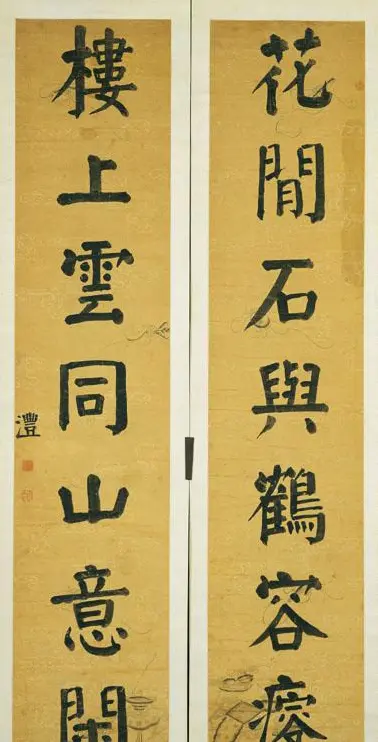 花閒石與鶴容
樓上雲同山意
澧